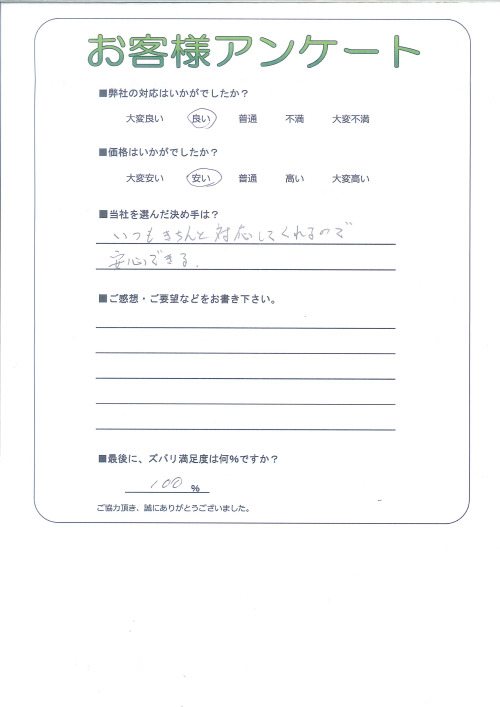 お客様アンケート
■弊社の対応はいかがでしたか？
大変良い 良い 普通 不満 大変不満
■価格はいかがでしたか？
大変安い 安い 普通 高い 大変高い
■当社を選んだ決め手は？
いつもきちんと対応してくれるので
安心できる.
■ご感想・ご要望などをお書き下さい。
■最後に、ズバリ満足度は何%ですか？
100 %
ご協力頂き、誠にありがとうございました。